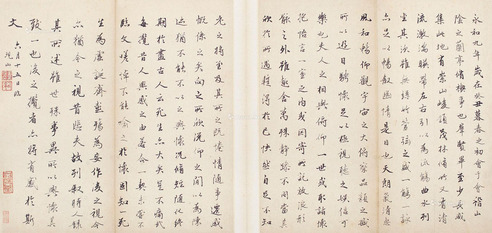 永和九年歲在癸丑暮春之初會于會稽山
陰之蘭亭脩稧事也羣賢畢至少長咸
集此地有崇山峻領茂林脩竹又有清
流激湍暎帶左右引以為流觴曲水列
坐其次雖無絲竹管弦之盛一觴一詠
亦足以暢敘幽情是日也天朗氣清惠
風和暢仰觀宇宙之大俯察品類之盛
所以遊目騁懷足以極視聽之娛信可
樂也夫人之相與俯仰一世或取諸懷
抱悟言一室之內或因寄所託放浪形
骸之外雖趣舍萬殊靜躁不同當其
欣於所遇蹔得於己怏然自足不知
老之將至及其所之既惓情隨事遷感
慨係之矣向之所欣俛仰之間以為陳
迹猶不能不以之興懷況脩短隨化終
期於盡古人云死生亦大矣豈不痛哉
每攬昔人興感之由若合一契未嘗不
臨文嗟悼不能喻之於懷固知一死
生為虛誕齊彭殤為妄作後之視今
亦猶今之視昔悲夫故列敘時人錄
其所述雖世殊事異所以興懷其
致一也後之攬者亦將有感於斯
文
六月十五日臨